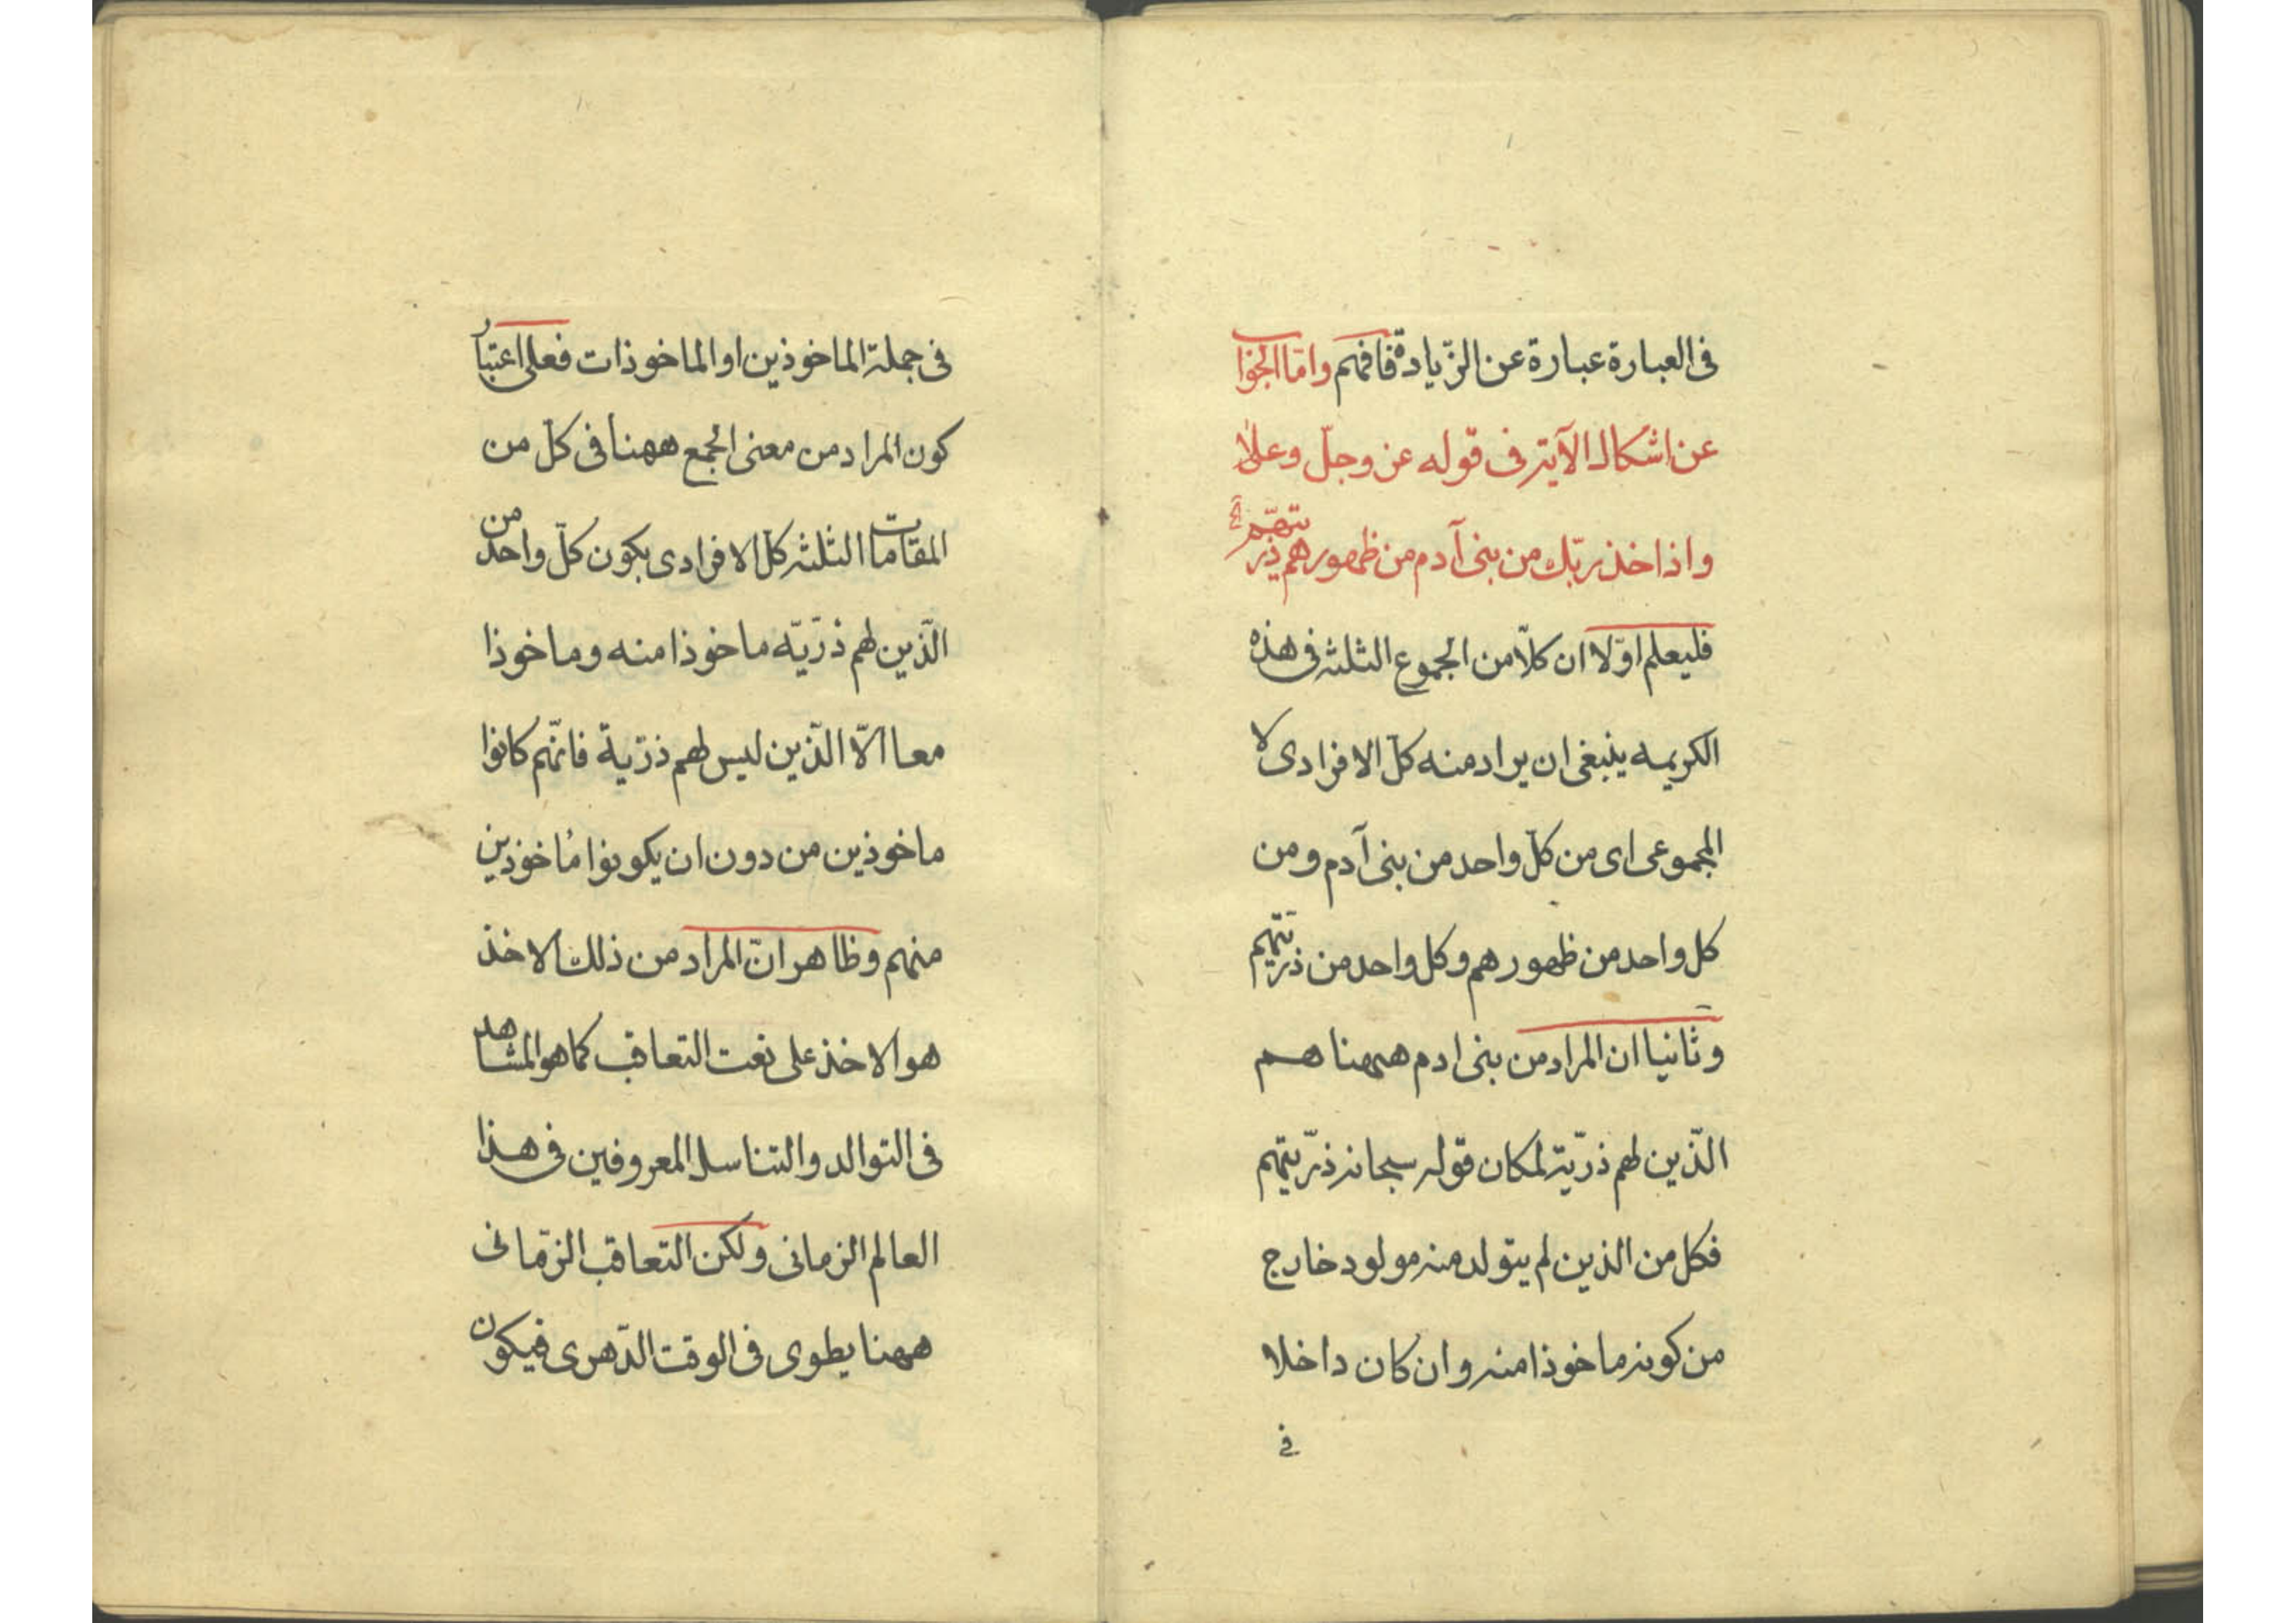 فی العبارة عبارة عن الزّیادة فافهم وامّا الجواب
عن اشکال الآیة فی قوله عز وجلّ وعلا
واذ اخذ ربّك من بنی آدم من ظهورهم ذرّیتهم
فلیعلم اوّلا ان کلّا من الجموع الثلثه فی هذه
الکریمه ینبغی ان یراد منه کلّ الافرادی لا
المجموعی ای من کلّ واحد من بنی آدم ومن
کل واحد من ظهورهم وکل واحد من ذریّتهم
وثانیا ان المراد من بنی ادم ههنا هم
الّذین لهم ذرّیّة لمکان قوله سبحانه ذرّیتهم
فکل من الذین لم یتولد منه مولود خارج
من کونه ماخوذا منه وان کان داخلا
فی
فی جملة الماخوذین او الماخوذات فعلی اعتبار
کون المراد من معنی الجمع ههنا فی کلّ من
المقامات الثلثه کلّ الافرادی یکون کلّ واحد من
الّذین لهم ذرّیّه ماخوذا منه وماخوذا
معا الّا الّذین لیس لهم ذرّیة فانّهم کانوا
ماخوذین من دون ان یکونوا ماخوذین
منهم وظاهر انّ المراد من ذلك الاخذ
هو الاخذ علی نعت التعاقب کما هو المشاهد
فی التوالد والتناسل المعروفین فی هذا
العالم الزمانی ولکن التعاقب الزمّانی
ههنا یطوی فی الوقت الدّهری فیکون